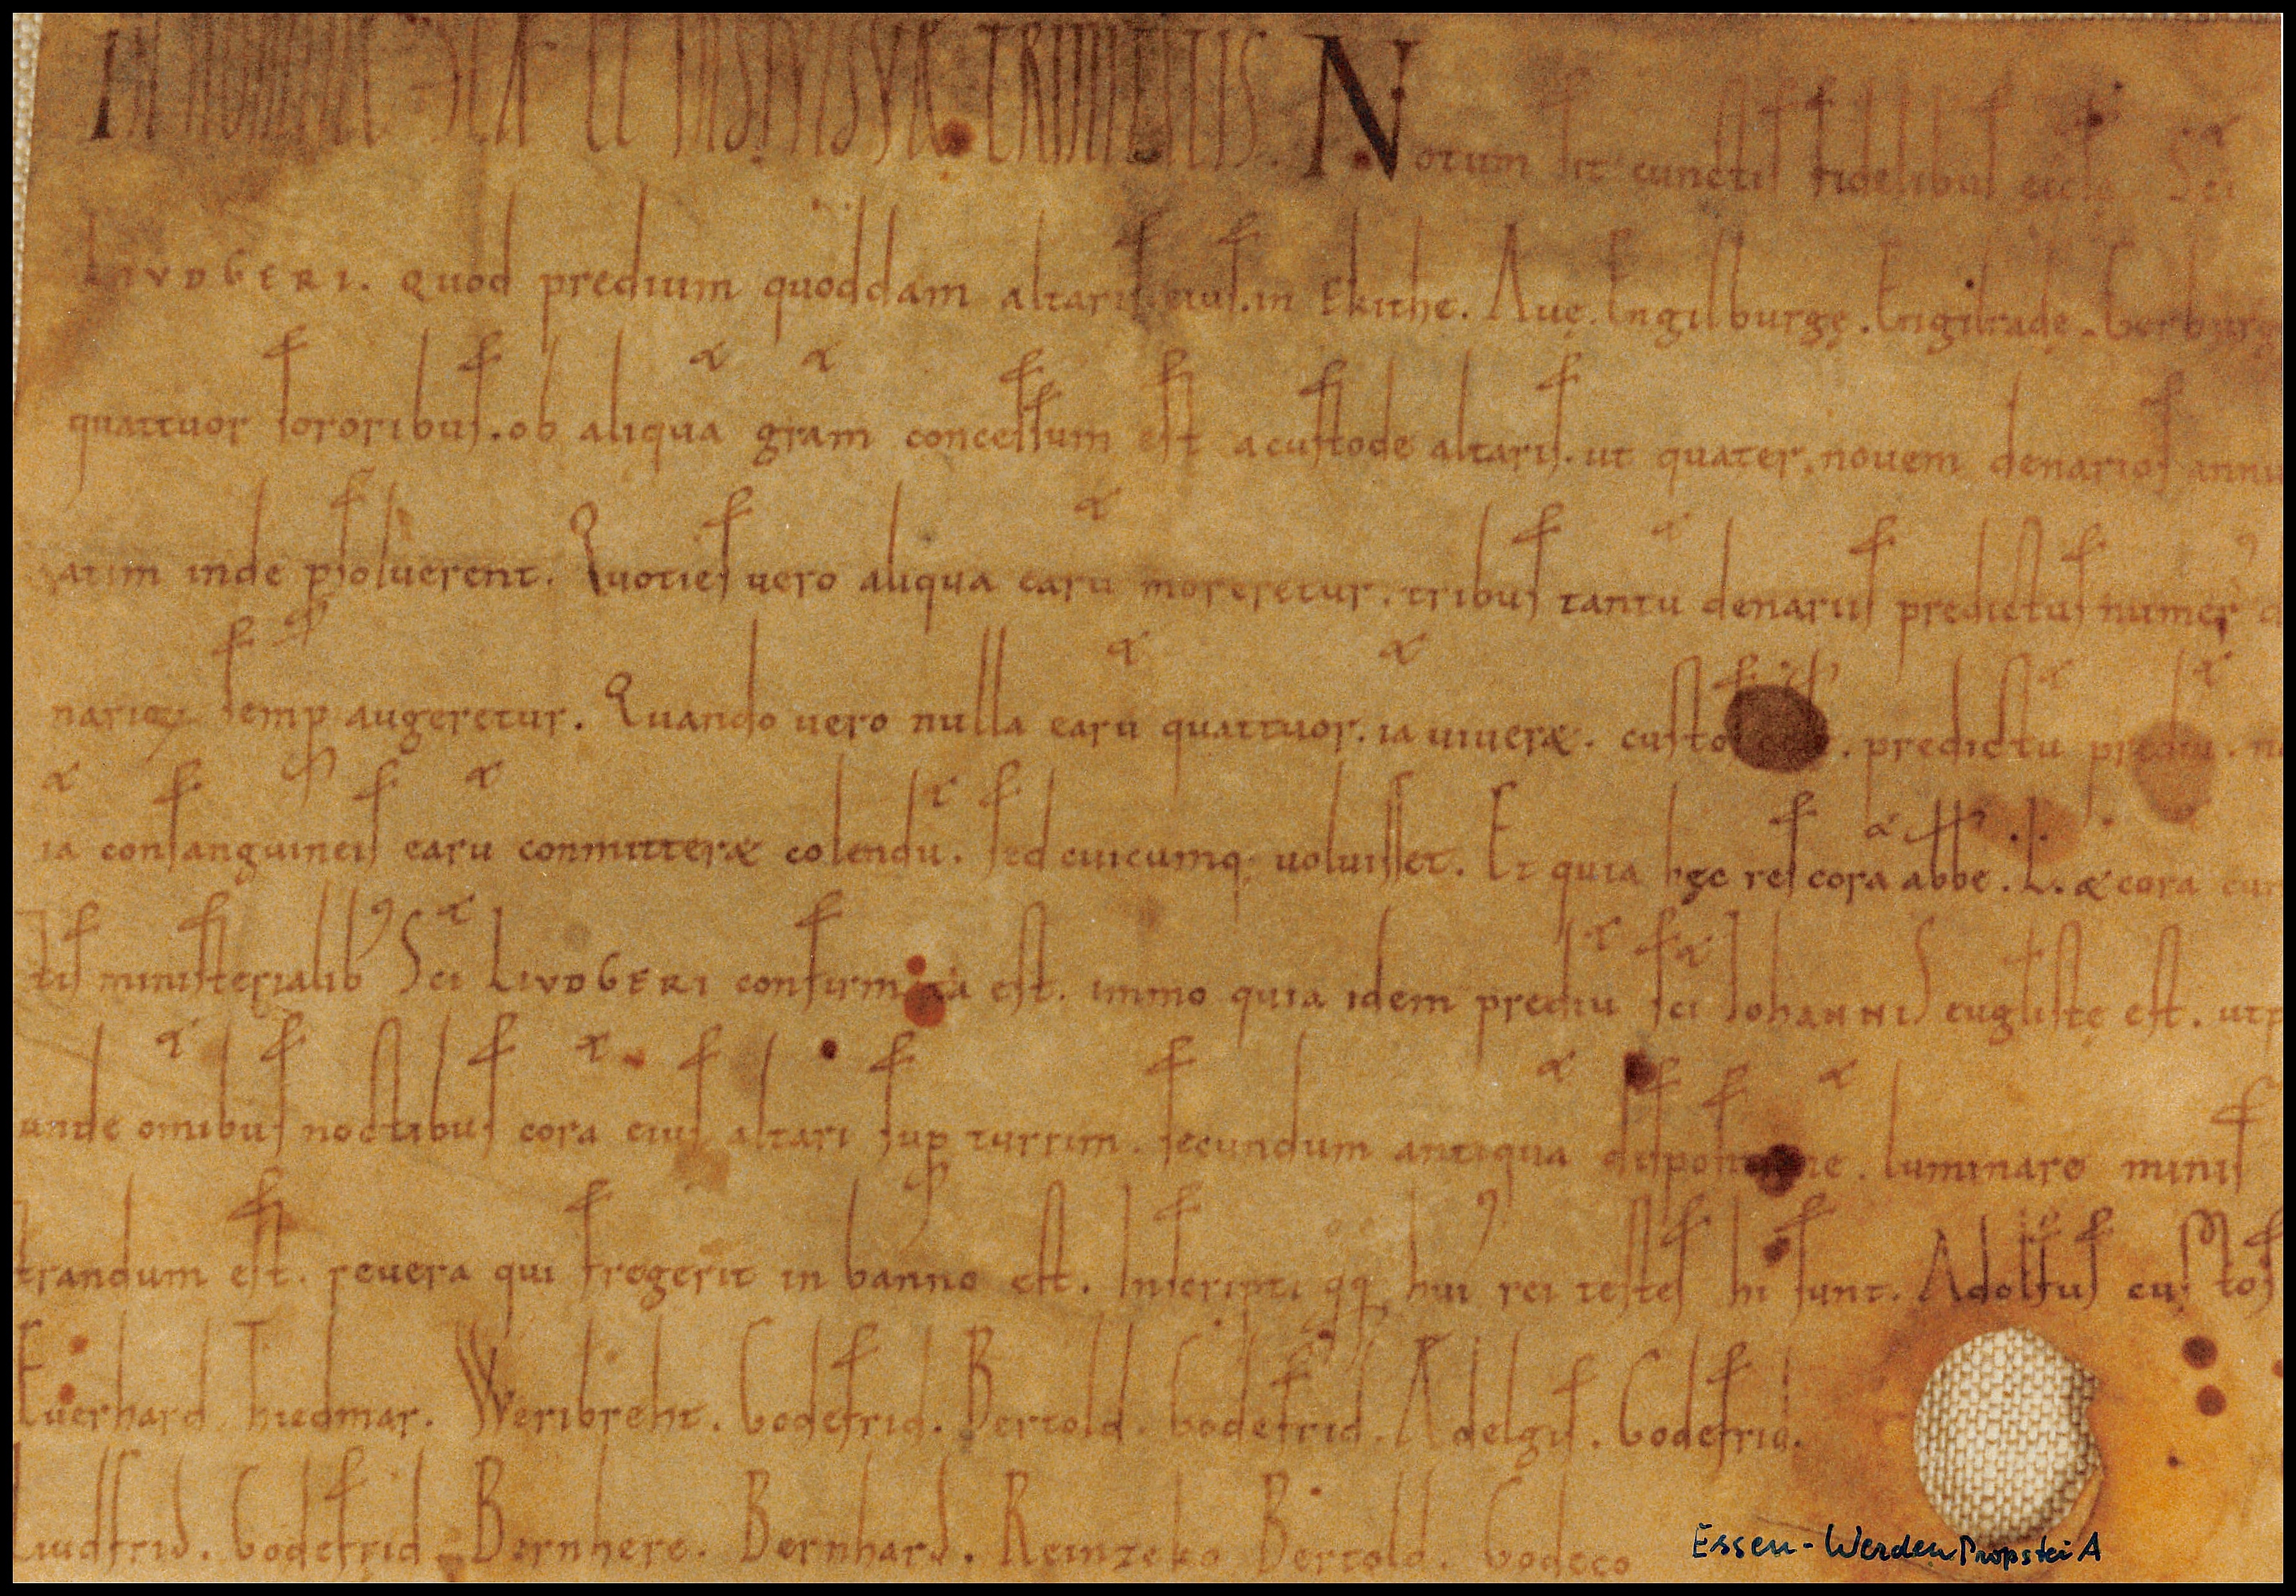 IN NOMINE SCE ET INDIVIDVAE TRINITATIS. Notum sit cunctis fidelibus eccle Sci
LIVDGERI. Quod predium quoddam altaris eius. in Ekithe. Auę. Engilburgę. Engilradę. Gerburgę
quattuor sororibus. ob aliqua gram concessum est a custode altaris. ut quater. nouem denarios annu
atim inde psoluerent. Quoties uero aliqua earu moreretur. tribus tantu denariis predictus numer
semp augeretur. Quando uero nulla earu quattuor. ia uiueræ. predictu prediu.
ia consanguineis earu conmitteræ colendu. sed cuicumq; uoluisset. Et quia hęc res cora abbe. L. æ cora cun
tis ministerialib Sci LIVDGERI confirmata est. immo quia idem prediu sci IohanniS euglistę est.
unde omibus noctibus cora eius altari sup turrim. secundum antiqua luminare minis
trandum est. reuera qui fregerit in banno est. Inscripti qq hui rei testes hi sunt. Adolfus custos
Euerhard Thiedmar. Weribreht. Godefrid. Bertold. Godefrid. Adelgis. Godefrid.
Liudfrid. Godefrid Bernhere. Bernhard. Reinzeko Bertold. Godeco
Essen-Werden Propstei A